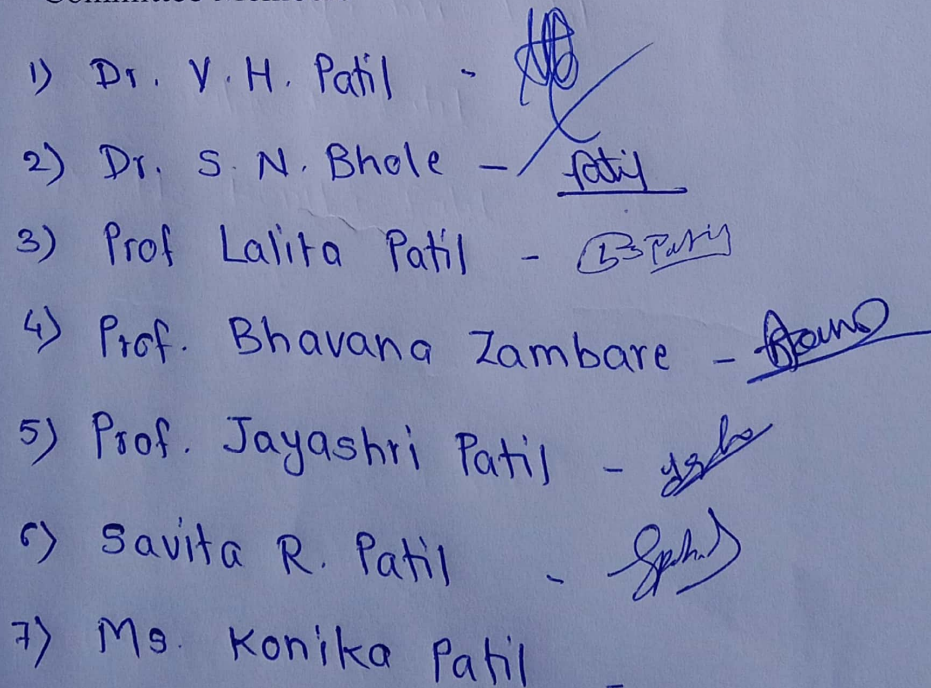 1) Dr. V. H. Patil -
2) Dr. S. N. Bhole - Patil
3) Prof Lalita Patil - Patil
4) Prof. Bhavana Zambare -
5) Prof. Jayashri Patil -
6) Savita R. Patil -
7) Ms. Konika Patil -